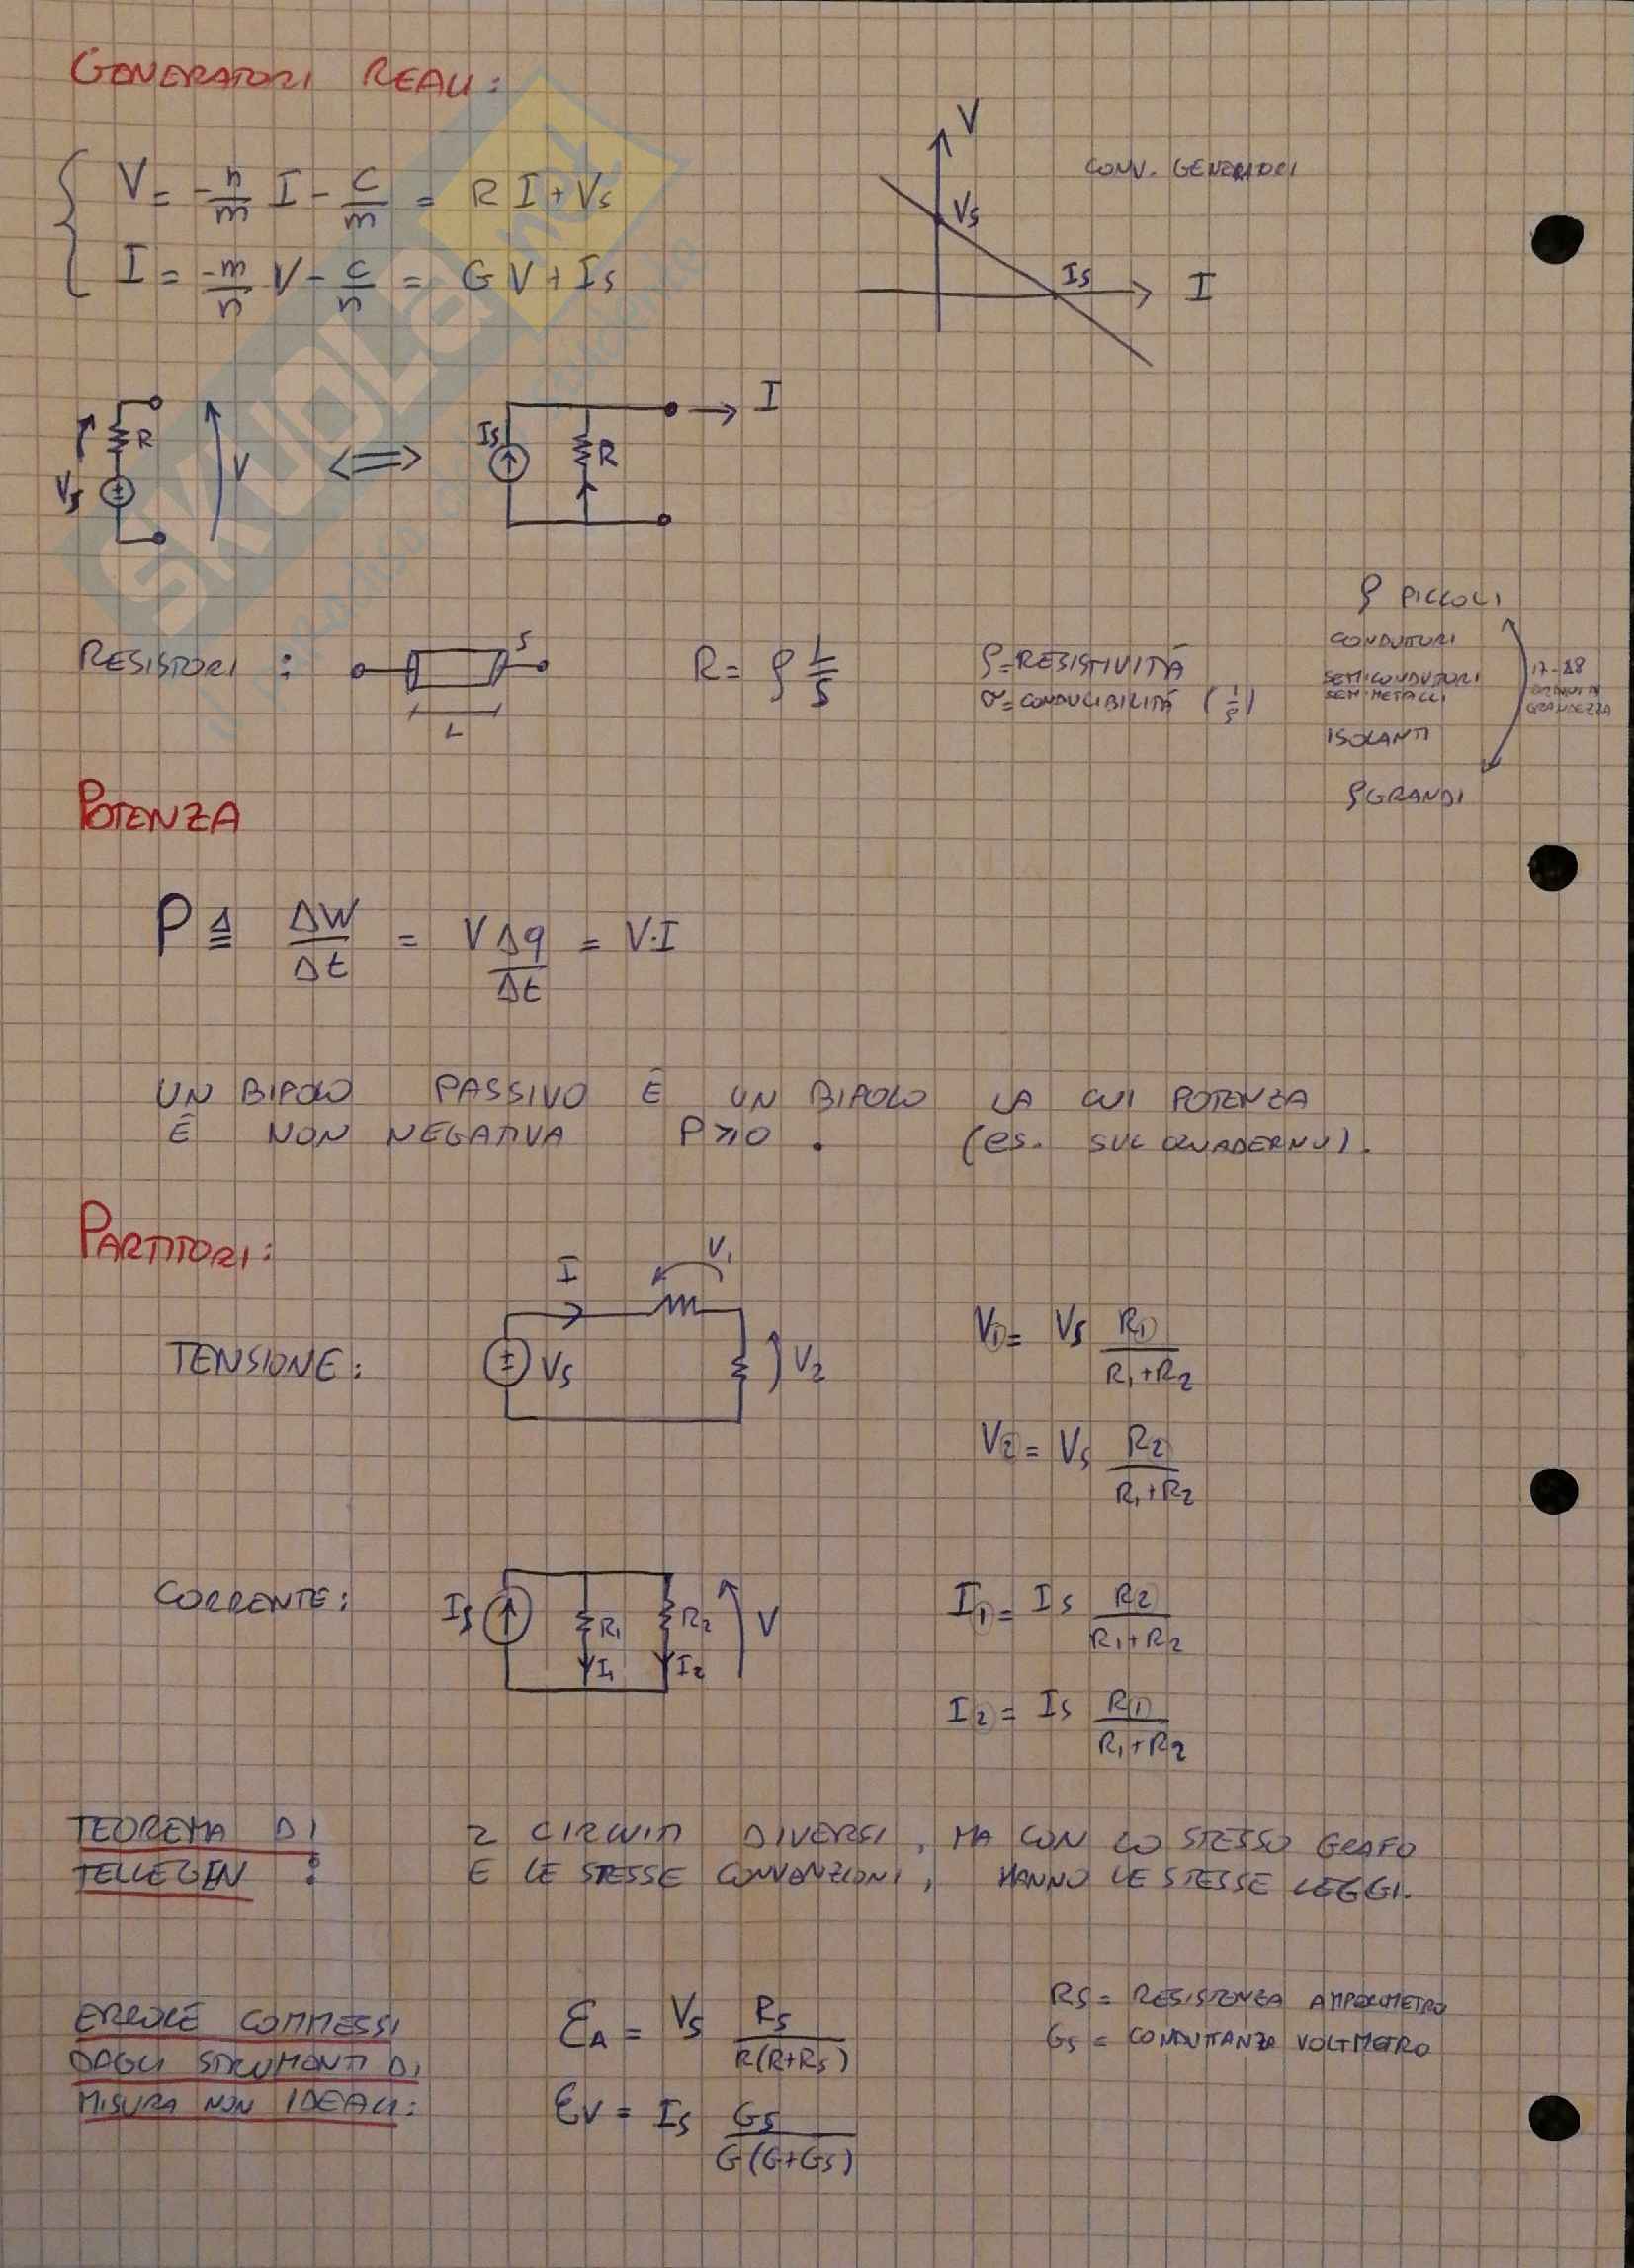 GENERATORI REALI:
V = -n/m I - c/m = R I + Vs
I = -m/n V - c/n = G V + Is
V
CONV. GENERATORI
Vs
Is
I
R
Vs
V
⟺
Is
R
I
RESISTORI :
S
L
R = ρ L/S
ρ = RESISTIVITÁ
σ = CONDUCIBILITÁ (1/ρ)
ρ PICCOLI
CONDUTTORI
SEMICONDUTTORI
SEMIMETALLI
ISOLANTI
ρ GRANDI
17-18
ORDINI DI
GRANDEZZA
POTENZA
P ≜ ΔW/Δt = V Δq/Δt = V·I
UN BIPOLO PASSIVO È UN BIPOLO LA CUI POTENZA
È NON NEGATIVA P≥0 . (es. SUL QUADERNO).
PARTITORI:
TENSIONE:
I
V1
Vs
V2
V① = Vs R①/(R1+R2)
V② = Vs R②/(R1+R2)
CORRENTE:
Is
R1
R2
V
I1
I2
I① = Is R②/(R1+R2)
I② = Is R①/(R1+R2)
TEOREMA DI
TELLEGEN :
2 CIRCUITI DIVERSI, MA CON LO STESSO GRAFO
E LE STESSE CONVENZIONI, HANNO LE STESSE LEGGI.
ERRORE COMMESSI
DAGLI STRUMENTI DI
MISURA NON IDEALI:
εA = Vs Rs/(R(R+Rs))
εV = Is Gs/(G(G+Gs))
RS = RESISTENZA AMPEROMETRO
GS = CONDUTTANZA VOLTMETRO
SKUOLa.net